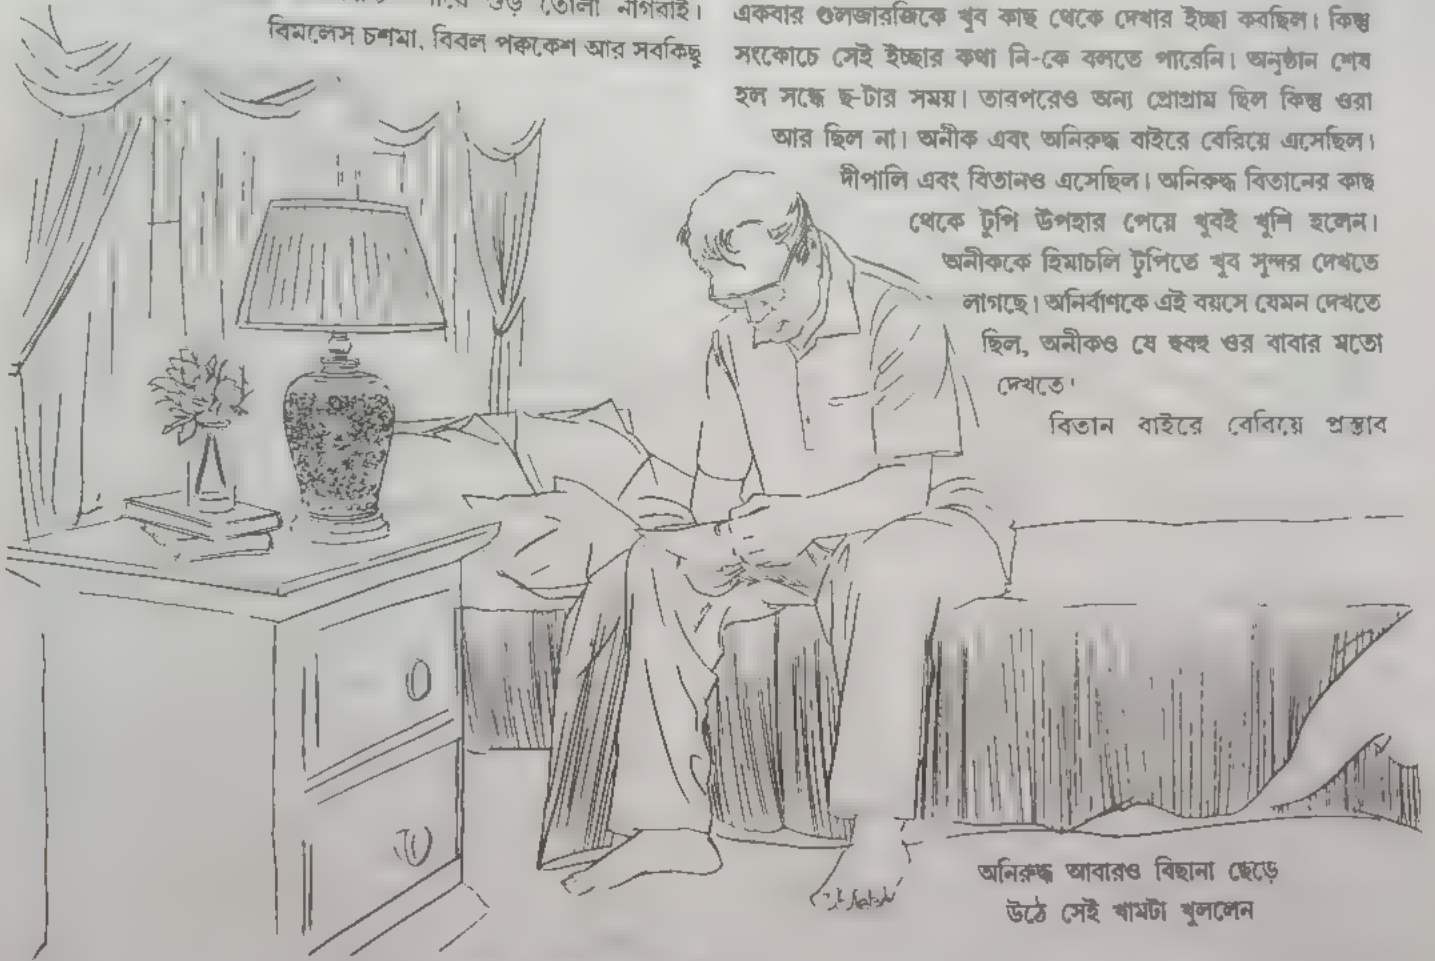 শুঁড় তোলা নাগরাই।
বিমলেস চশমা, বিবল পক্ককেশ আর সবকিছু
একবার গুলজারজিকে খুব কাছ থেকে দেখার ইচ্ছা করছিল। কিন্তু
সংকোচে সেই ইচ্ছার কথা নি-কে বলতে পারেনি। অনুষ্ঠান শেষ
হল সন্ধে ছ-টার সময়। তারপরেও অন্য প্রোগ্রাম ছিল কিন্তু ওরা
আর ছিল না। অনীক এবং অনিরুদ্ধ বাইরে বেরিয়ে এসেছিল।
দীপালি এবং বিতানও এসেছিল। অনিরুদ্ধ বিতানের কাছ
থেকে টুপি উপহার পেয়ে খুবই খুশি হলেন।
অনীককে হিমাচলি টুপিতে খুব সুন্দর দেখতে
লাগছে। অনির্বাণকে এই বয়সে যেমন দেখতে
ছিল, অনীকও যে হুবহু ওর বাবার মতো
দেখতে।
বিতান বাইরে বেরিয়ে প্রস্তাব
অনিরুদ্ধ আবারও বিছানা ছেড়ে
উঠে সেই খামটা খুললেন